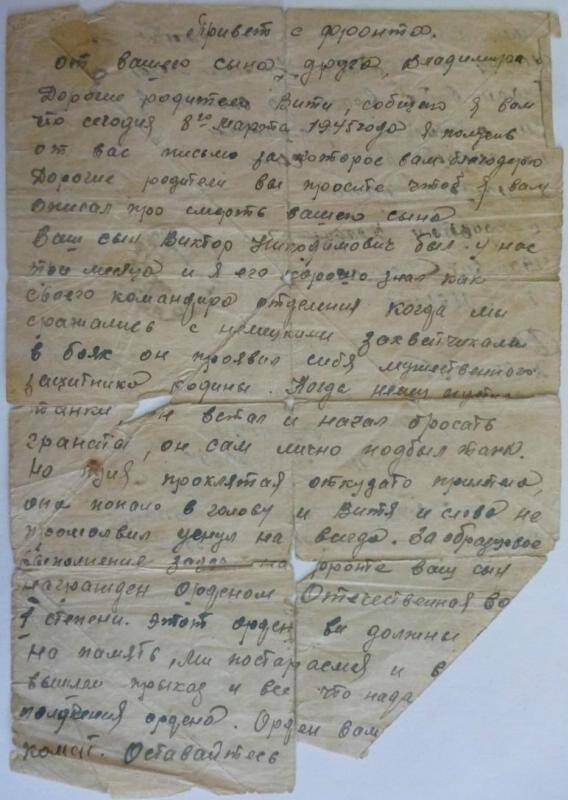 Привет с фронта.
от вашего сына друга, Владимира
Дорогие родители Вити, собщаю я вам
что сегодня 8го марта 1945 года я получив
от вас письмо за которое вам благодарю
Дорогие родители вы просите чтоб я вам
описал про смерть вашего сына
Ваш сын Виктор Никодимович был у нас
три месяца и я его хорошо знал как
своего командира отделения когда мы
сражались с немецкими захватчиками
в боях он проявил себя мужественного
защитника родины. Когда немец пустил
танки, он встал и начал бросать
гранаты, он сам лично подбыл танк.
Но пуля проклятая откудато прилтела,
она попала в голову и Витя и слова не
промолвил уснул на всегда. За образцовое
выполнение задач на фронте ваш сын
награжден орденом Отечественная во
1 степени. Этот орден вы должны
на память, мы постараемся и в
вышлем прыказ и все что нада
получения ордена. Орден вам
комат. Оставайтесь